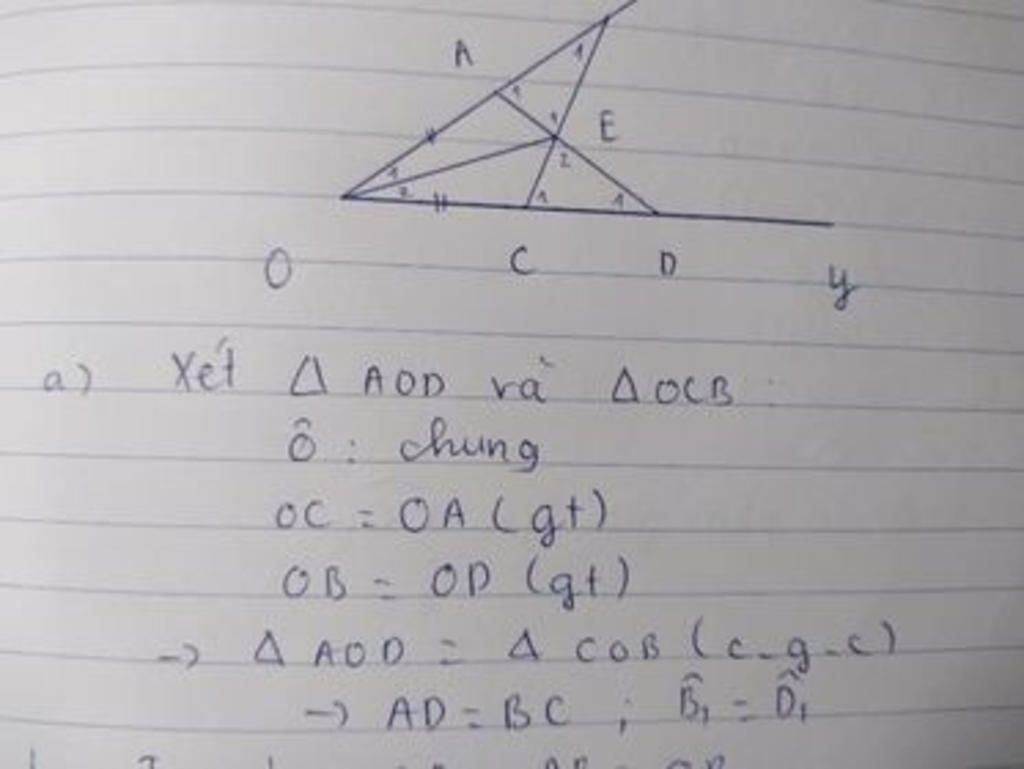 A
1
1
1
E
2
1
2
1
1
O
C
D
y
a) Xét Δ AOD và Δ OCB :
Ô : chung
OC = OA (gt)
OB = OD (gt)
→ Δ AOD = Δ COB (c-g-c)
→ AD = BC ; B̂₁ = D̂₁